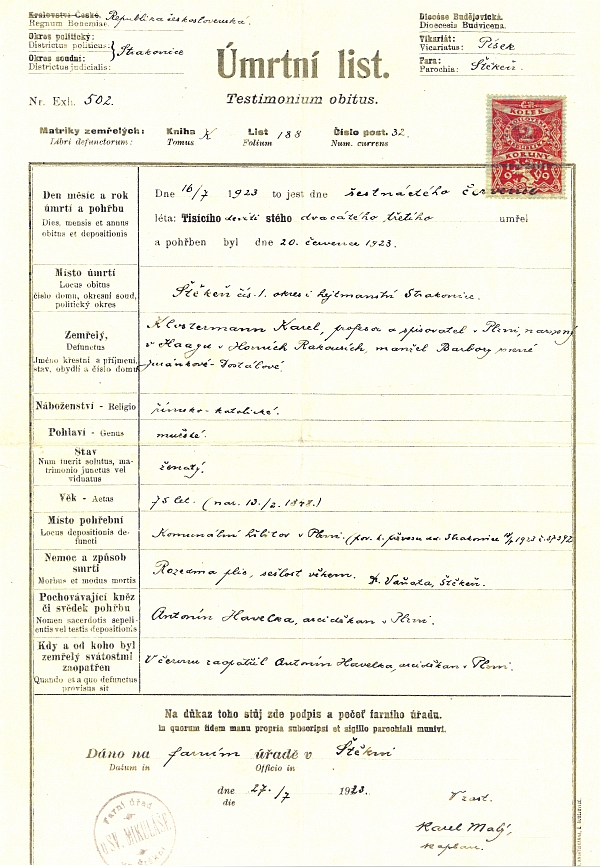 Království České. Republika československá.
Regnum Bohemiae.
Okres politický:
Districtus politicus:
Okres soudní:
Districtus judicialis:
Strakonice
Diecése Budějovická.
Dioecesis Budvicena.
Vikariát:
Vicariatus: Písek
Fara:
Parochia: Štěkeň
Úmrtní list.
Nr. Exh. 502.
Testimonium obitus.
Matriky zemřelých: Kniha X List 188 Číslo post. 32.
Libri defunctorum: Tomus Folium Num. currens
KOLEK
2
KORUNY
Den měsíc a rok
úmrtí a pohřbu
Dies, mensis et annus
obitus et depositionis
Dne 16/7 1923 to jest dne šestnáctého července
léta: Tisícího devíti stého dvacátého třetího umřel
a pohřben byl dne 20. července 1923.
Místo úmrtí
Locus obitus
číslo domu, okresní soud,
politický okres
Štěkeň čís. 1. okres i hejtmanství Strakonice.
Zemřelý,
Defunctus
Jméno křestní a příjmení,
stav, obydlí a číslo domu
Klostermann Karel, profesor a spisovatel v Plzni, narozený
v Haagu v Horních Rakousích, manžel Barbory
Náboženství - Religio
římsko-katolické.
Pohlaví - Genus
mužské.
Stav
Num fuerit solutus, ma-
trimonio junctus vel
viduatus
ženatý.
Věk - Aetas
75 let. (nar. 13./2. 1848.)
Místo pohřební
Locus depositionis de-
functi
Komunální hřbitov v Plzni.
Nemoc a způsob
smrti
Morbus et modus mortis
Rozedma plic, sešlost věkem. Dr. Vaňata, Štěkeň.
Pochovávající kněz
či svědek pohřbu
Nomen sacerdotis sepeli-
entis vel testis depositionis
Antonín Havelka, arciděkan v Plzni.
Kdy a od koho byl
zemřelý svátostmi
zaopatřen
Quando et a quo defunctus
provisus sit
V červnu zaopatřil Antonín Havelka, arciděkan v Plzni.
Na důkaz toho stůj zde podpis a pečeť farního úřadu.
in quorum fidem manu propria subscripsi et sigillo parochiali munivi.
Dáno na farním úřadě v Štěkni
Datum in Officio in
dne 27./7 1923.
die
V zast.
Karel Malý,
kaplan.
Farní úřad
U SV. MIKULÁŠE